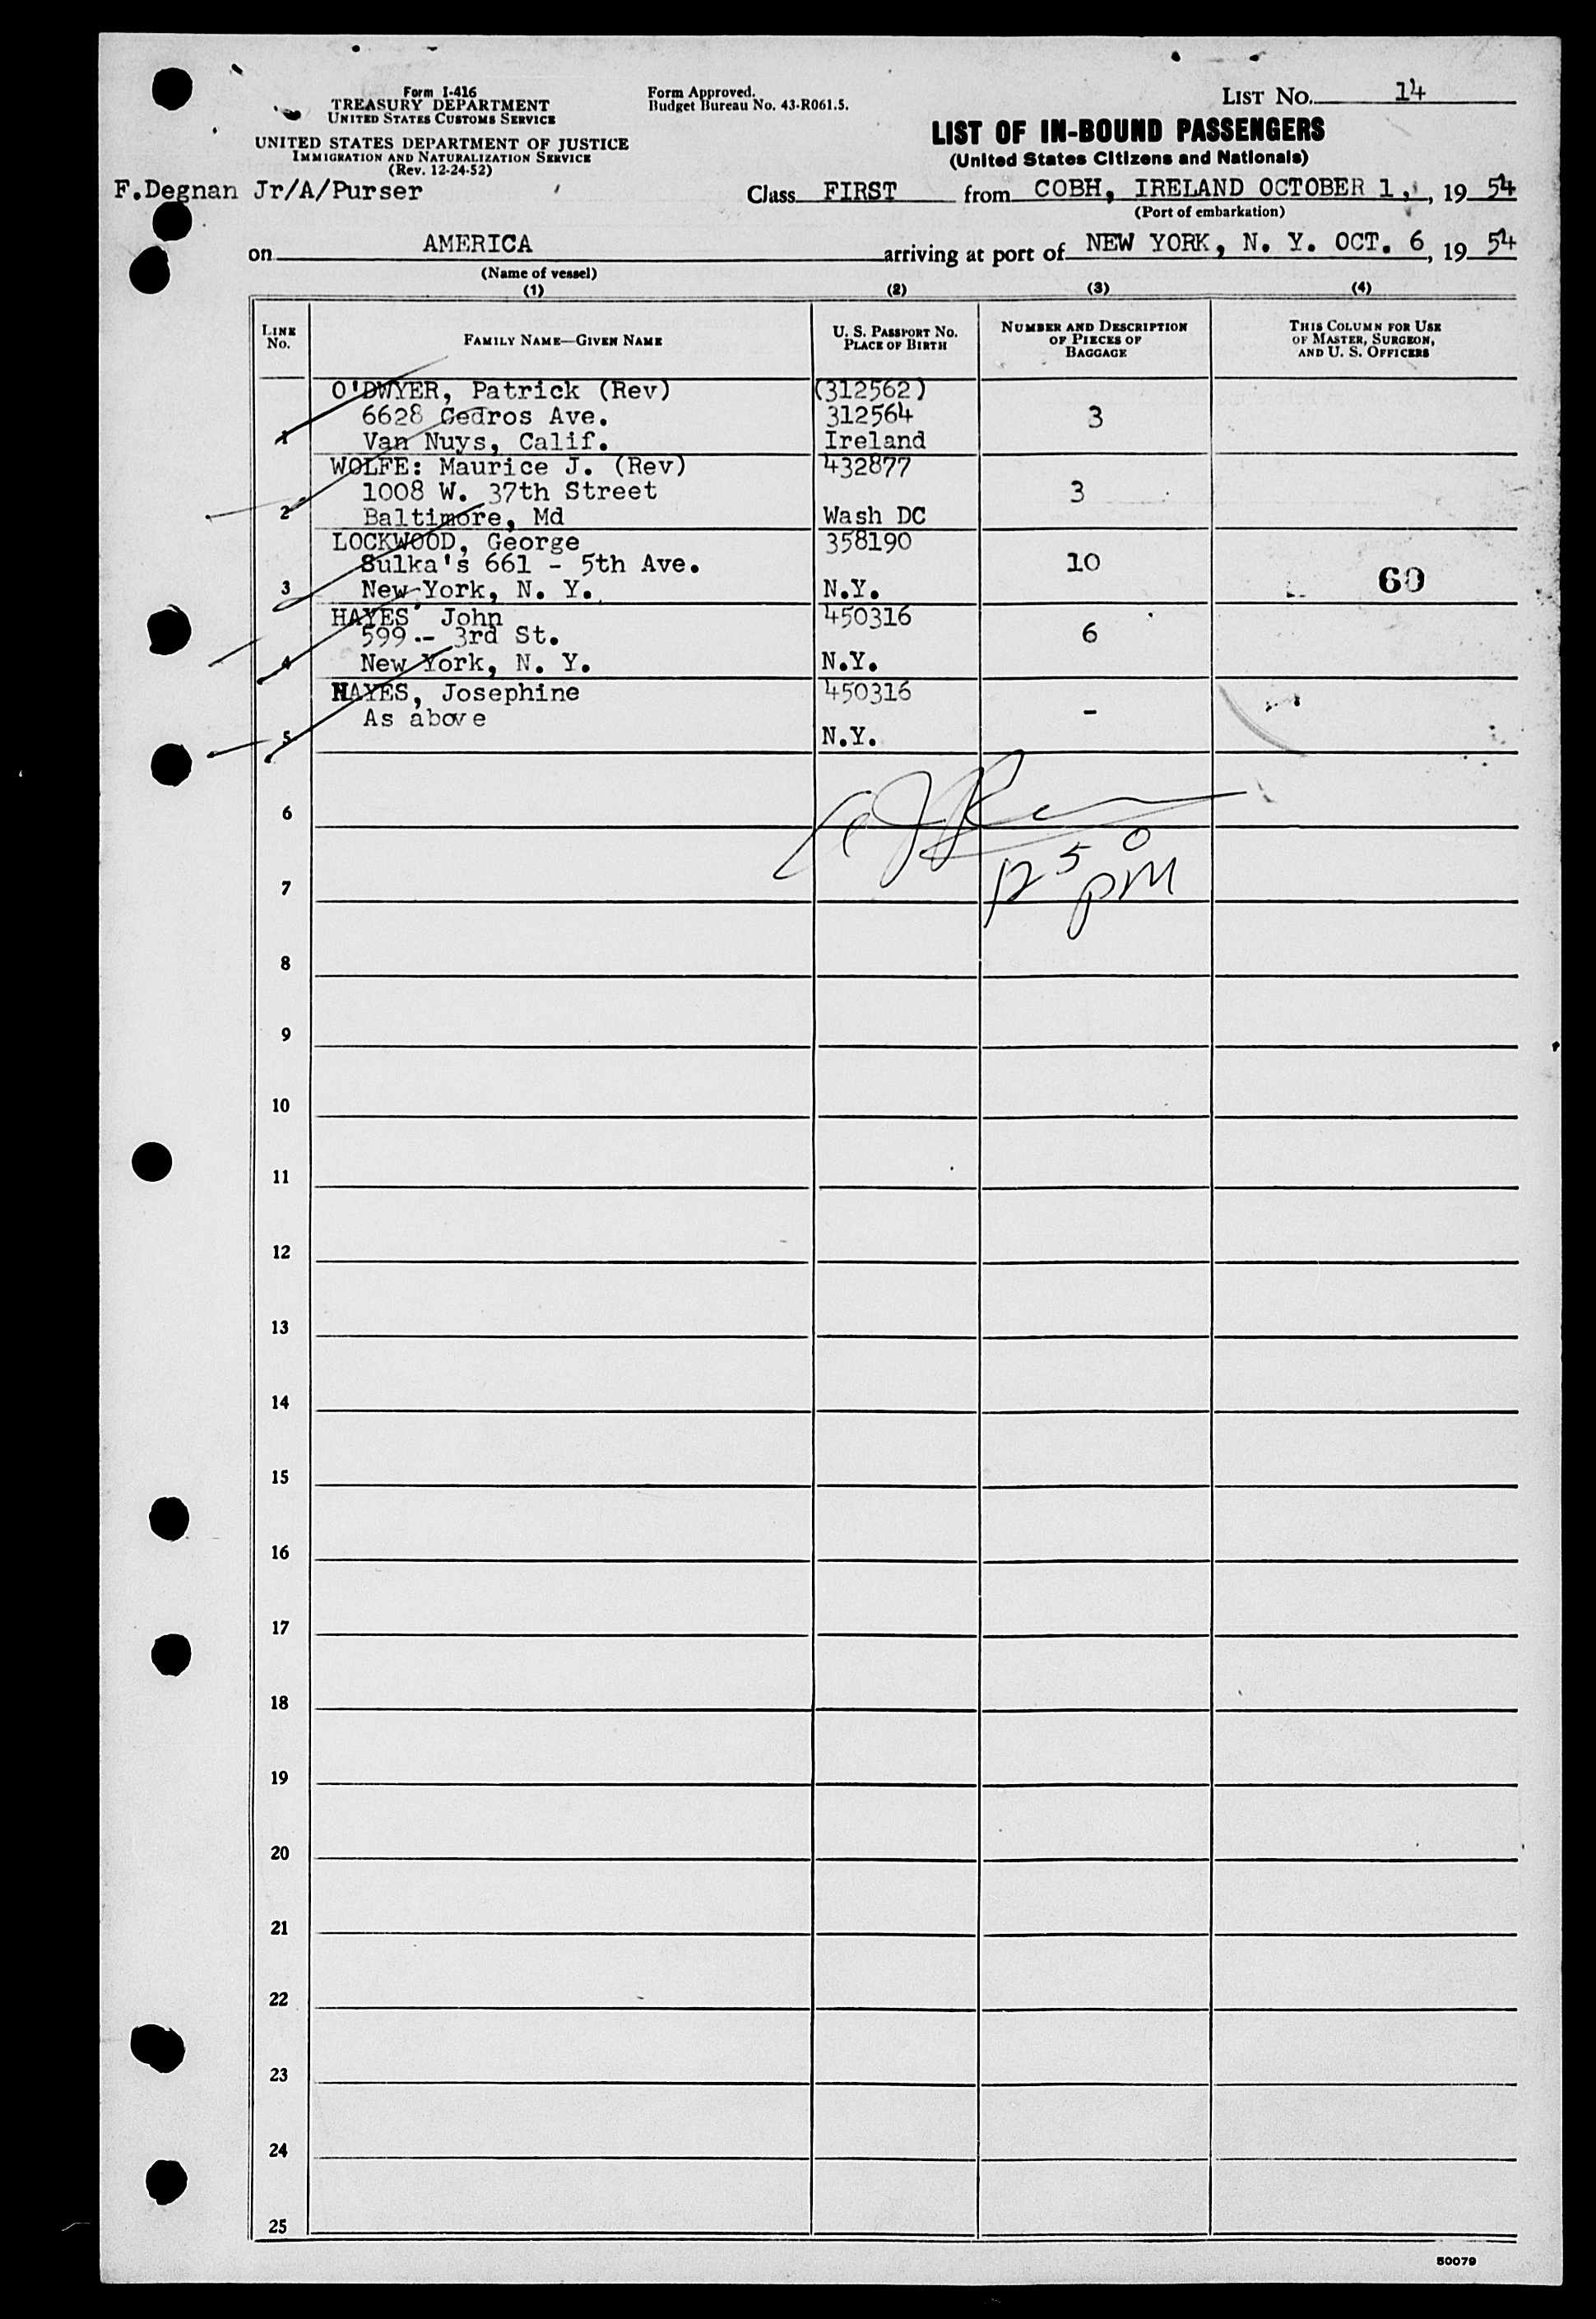 Form I-416
TREASURY DEPARTMENT
UNITED STATES CUSTOMS SERVICE
UNITED STATES DEPARTMENT OF JUSTICE
IMMIGRATION AND NATURALIZATION SERVICE
(Rev. 12-24-52)
Form Approved.
Budget Bureau No. 43-R061.5.
LIST No. 14
LIST OF IN-BOUND PASSENGERS
(United States Citizens and Nationals)
F.Degnan Jr/A/Purser
Class FIRST from COBH, IRELAND OCTOBER 1, , 19 54
(Port of embarkation)
on AMERICA arriving at port of NEW YORK, N. Y. OCT. 6, 19 54
(Name of vessel)
(1) (2) (3) (4)
LINE No.
FAMILY NAME—GIVEN NAME
U. S. PASSPORT NO.
PLACE OF BIRTH
NUMBER AND DESCRIPTION
OF PIECES OF
BAGGAGE
THIS COLUMN FOR USE
OF MASTER, SURGEON,
AND U. S. OFFICERS
O'DWYER, Patrick (Rev) (312562)
6628 Cedros Ave. 312564 3
1 Van Nuys, Calif. Ireland
WOLFE: Maurice J. (Rev) 432877
1008 W. 37th Street 3
2 Baltimore, Md Wash DC
LOCKWOOD, George 358190
Sulka's 661 - 5th Ave. 10
3 New York, N. Y. N.Y. 60
HAYES' John 450316
599 - 3rd St. 6
4 New York, N. Y. N.Y.
HAYES, Josephine 450316
As above -
5 N.Y.
6
12 50
7 PM
8
9
10
11
12
13
14
15
16
17
18
19
20
21
22
23
24
25
50079